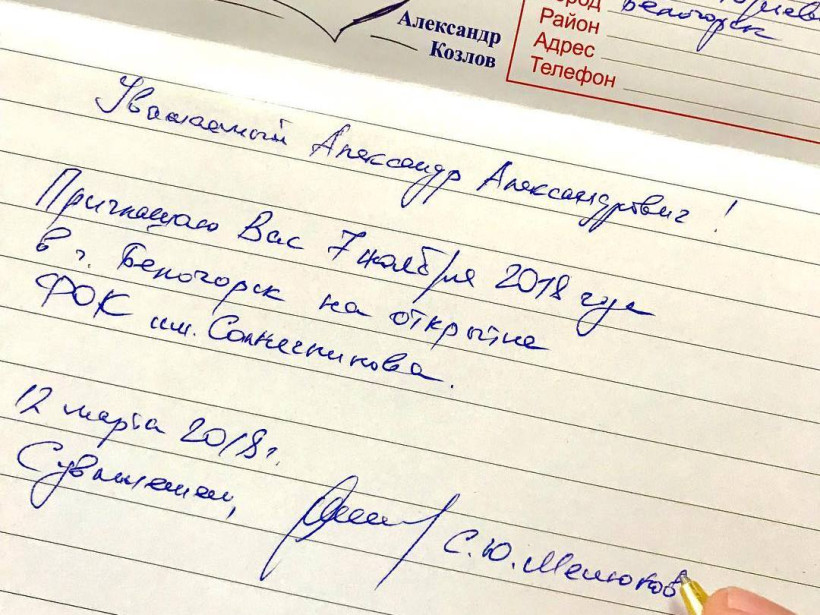 Александр
Козлов
Белогорск
Район
Адрес
Телефон
Уважаемый Александр Александрович!
Приглашаю Вас 7 ноября 2018 года
в г. Белогорск на открытие
ФОК им. Солнечникова.
12 марта 2018г.
С уважением,
С.Ю. Мелюков